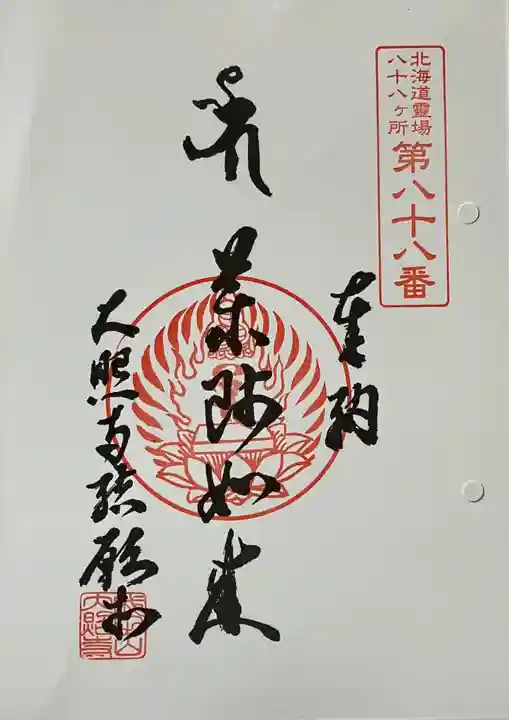 北海道靈場
八十八ヶ所
第八十八番
奉納
薬師如来
大照寺